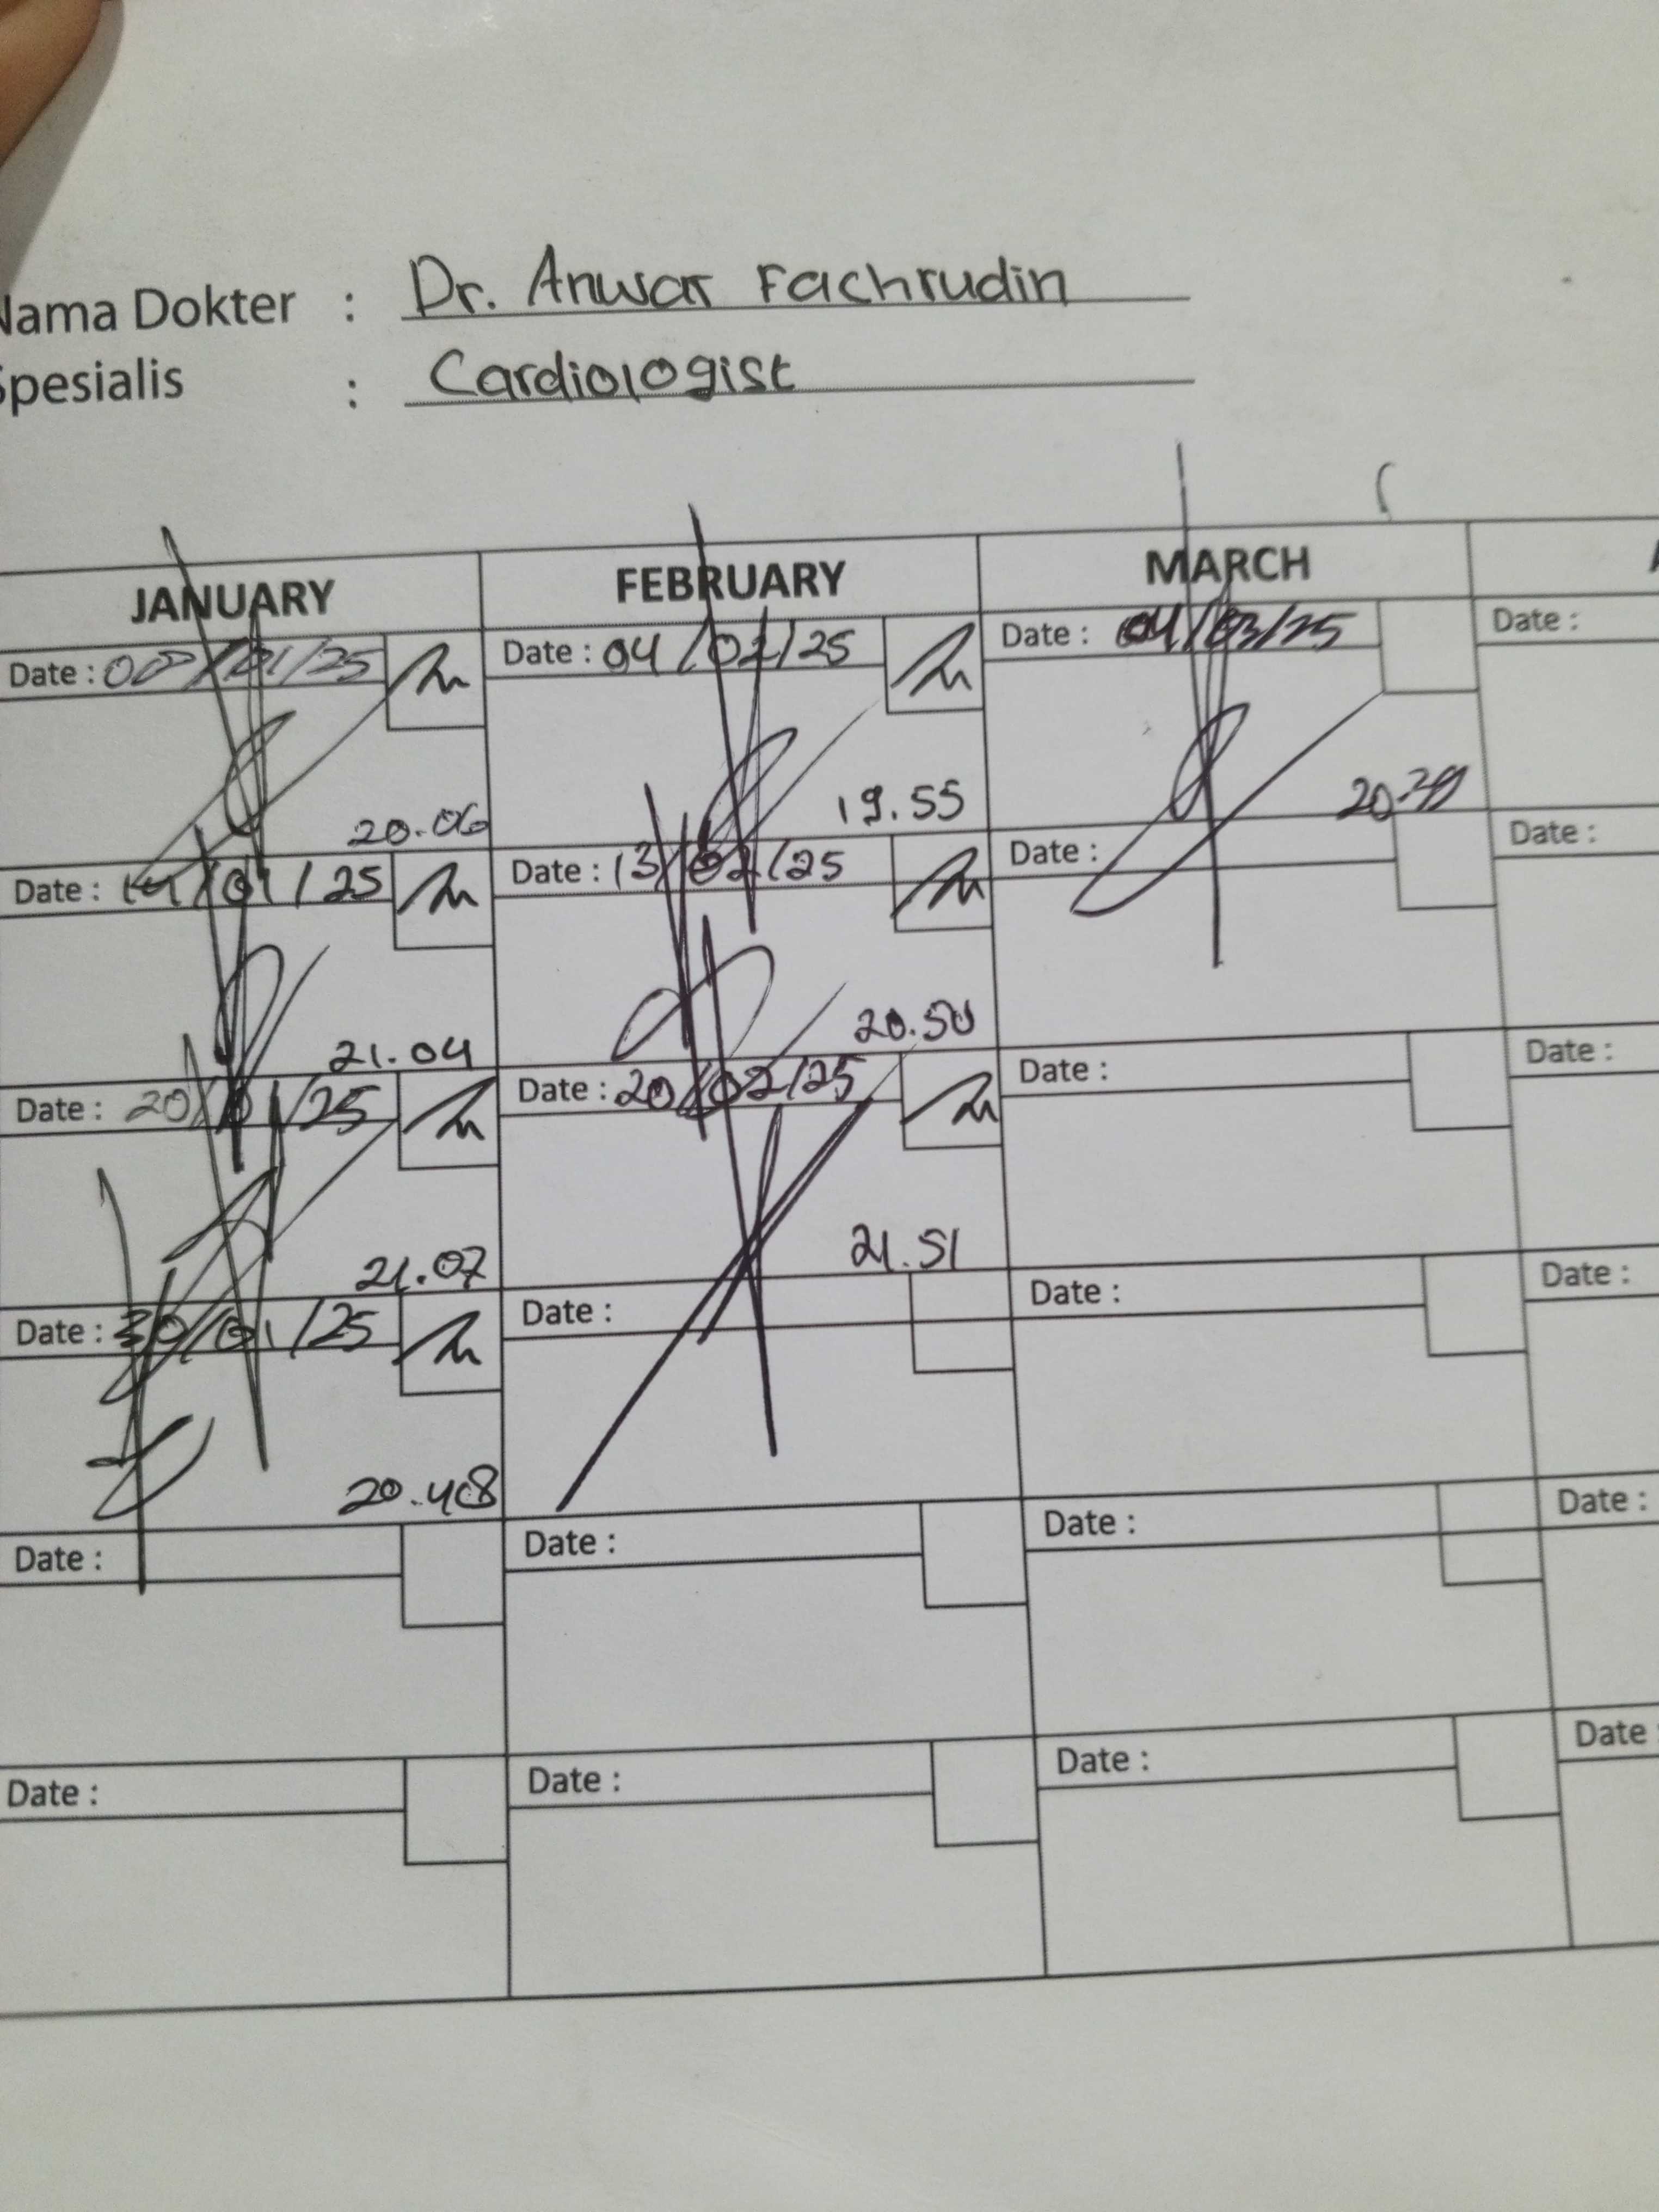 Nama Dokter : Dr. Anwar Fachrudin
Spesialis : Cardiologist
JANUARY FEBRUARY MARCH
Date : /01/25 Date : 04/02/25 Date : 04/03/25 Date :
20.06 19.55
Date : 14/01/25 Date : 13/02/25 Date : Date :
21.04 20.50
Date : 20/01/25 Date : 20/02/25 Date : Date :
21.07 21.51
Date : 30/01/25 Date : Date : Date :
20.48
Date : Date : Date : Date :
Date : Date : Date : Date :